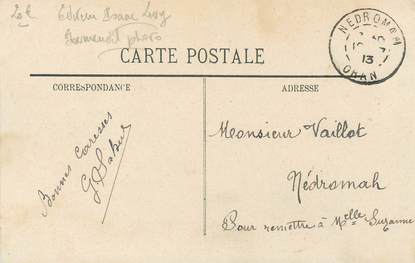 Isaac Levy
photo
CARTE POSTALE
NÉDROMAH
13
ORAN
CORRESPONDANCE
ADRESSE
Bonnes caresses
Monsieur Vaillot
Nédromah
Pour remettre à Melle Suzanne